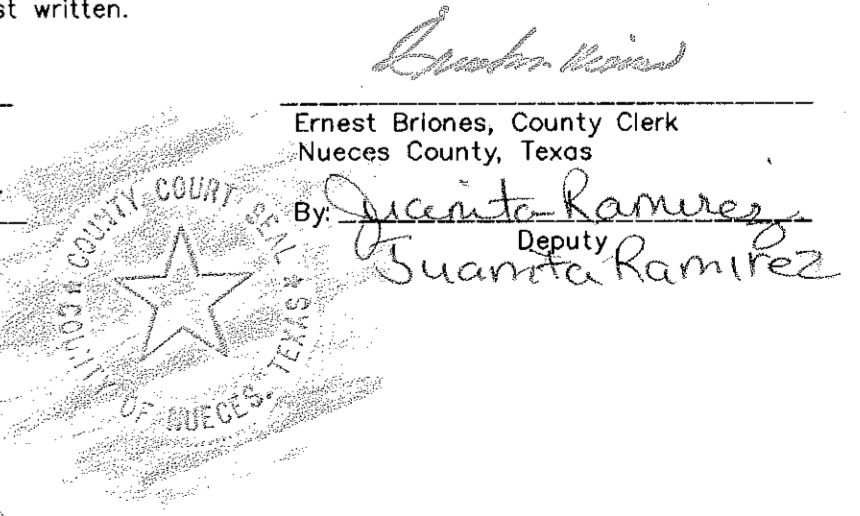 st written.
Ernest Briones, County Clerk
Nueces County, Texas
By: Juanita Ramirez
Deputy
Juanita Ramirez
COUNTY COURT SEAL
COUNTY OF NUECES, TEXAS